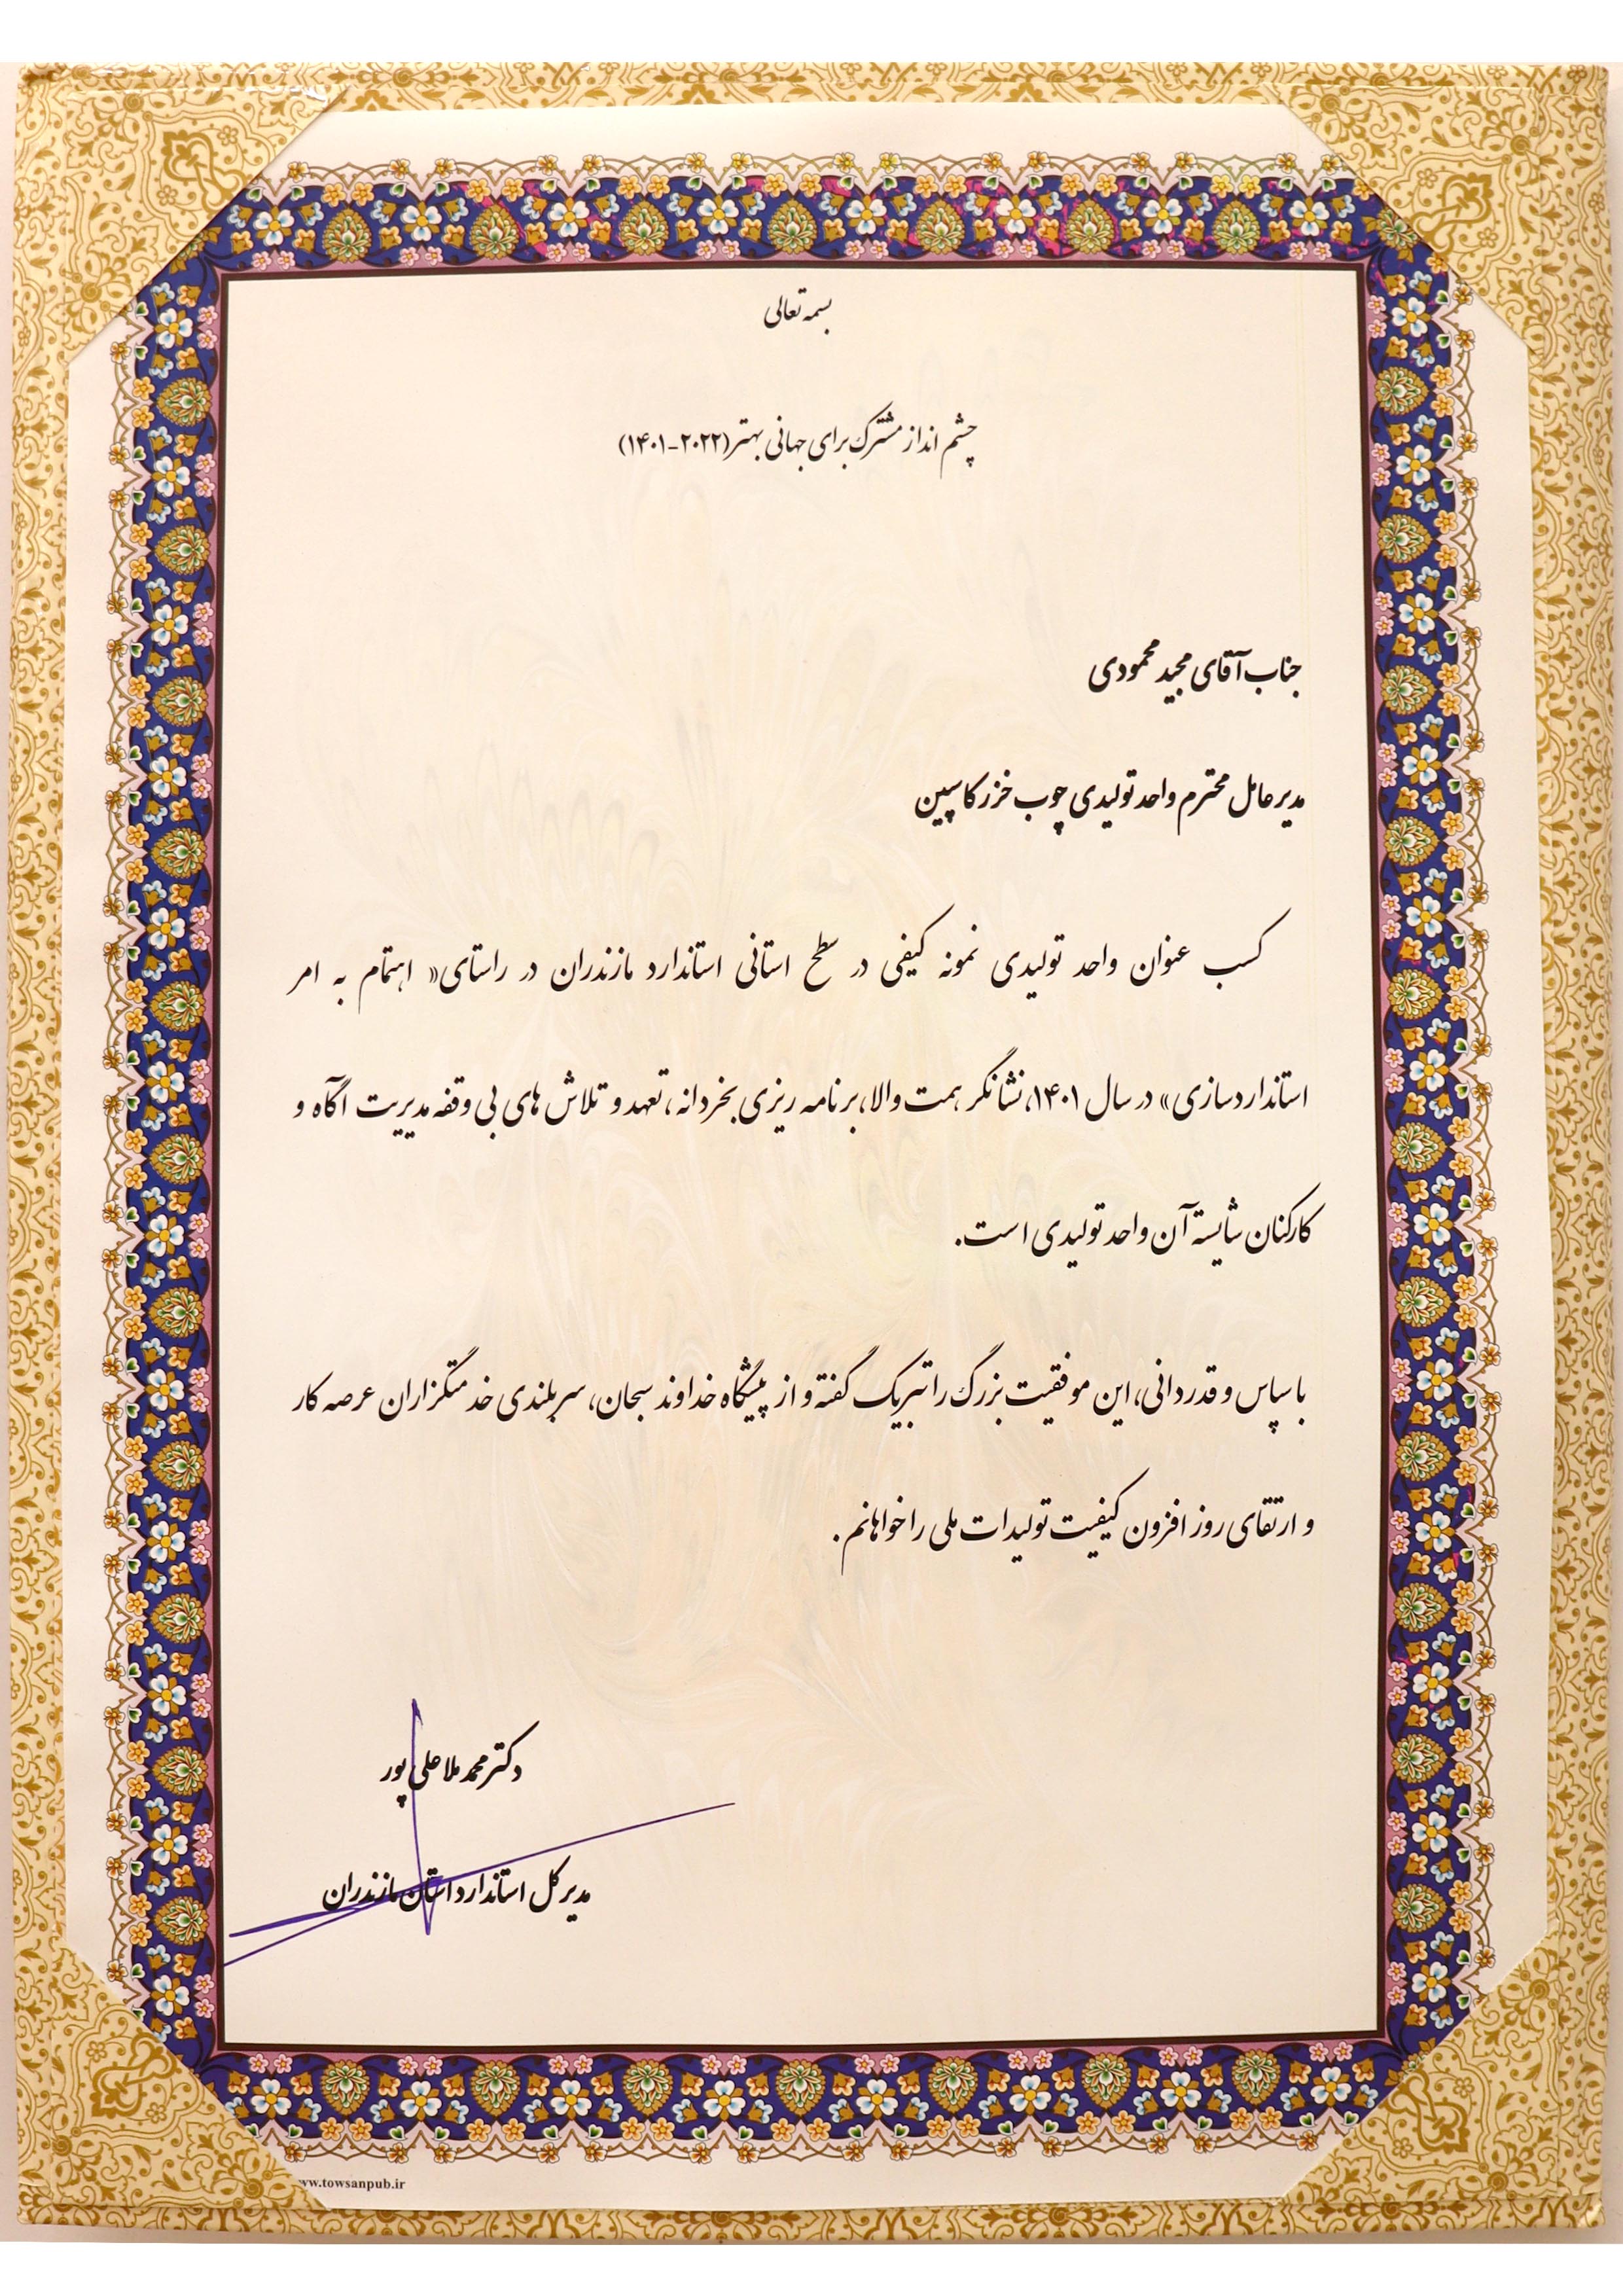 بسمه تعالی
چشم انداز مشترک برای جهانی بهتر (۲۰۲۲-۱۴۰۱)
جناب آقای مجید محمودی
مدیر عامل محترم واحد تولیدی چوب خزر کاسپین
کسب عنوان واحد تولیدی نمونه کیفی در سطح استانی استاندارد مازندران در راستای « اهتمام به امر
استانداردسازی» در سال ۱۴۰۱، نشانگر همت والا، برنامه ریزی بخردانه، تعهد و تلاش های بی وقفه مدیریت آگاه و
کارکنان شایسته آن واحد تولیدی است.
با سپاس و قدردانی، این موفقیت بزرگ را تبریک گفته و از پیشگاه خداوند سبحان، سربلندی خدمتگزاران عرصه کار
و ارتقای روز افزون کیفیت تولیدات ملی را خواهانم.
دکتر محمد ملا علی پور
مدیر کل استاندارد استان مازندران
ww.towsanpub.ir